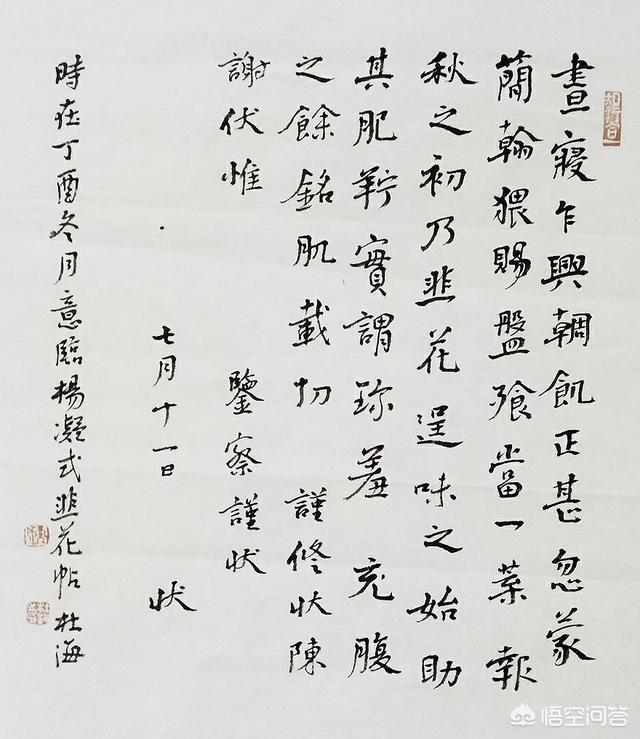 晝寢乍興輖飢正甚忽蒙
簡翰猥賜盤飧當一葉報
秋之初乃韭花逞味之始助
其肥羜實謂珎羞充腹
之餘銘肌載切謹脩狀陳
謝伏惟 鑒察謹狀
七月十一日 狀
時在丁酉冬月意臨楊凝式韭花帖 杜海
悟空问答